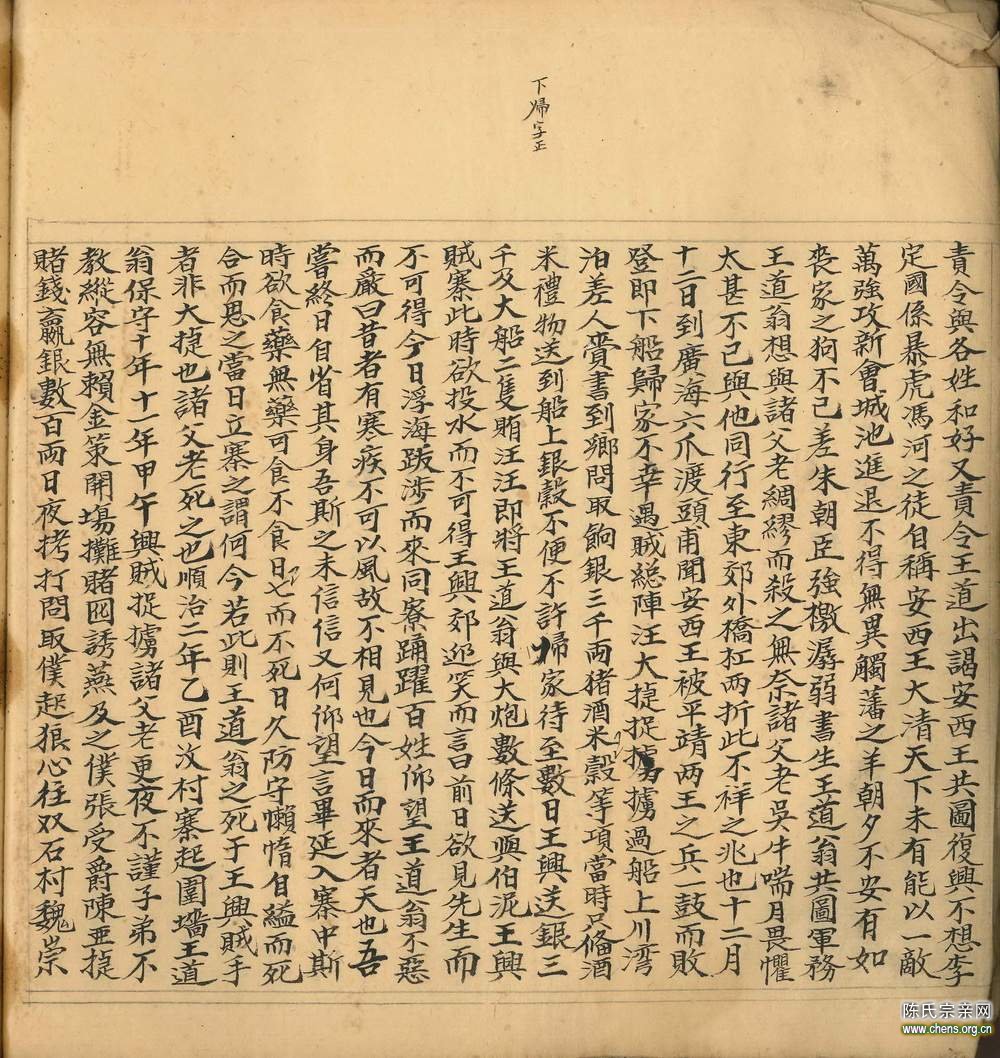 下㱕字正
責令與各姓和好又責令王道出謁安西王共圖復興不想李
定國係暴虎馮河之徒自稱安西王大清天下未有能以一敵
萬強攻新會城池進退不得無異觸藩之羊朝夕不安有如
喪家之狗不已差朱朝臣強檄孱弱書生王道翁共圖軍務
王道翁想與諸父老綢繆而殺之無奈諸父老吳牛喘月畏懼
太甚不已與他同行至東郊外橋扛两折此不祥之兆也十二月
十二日到廣海六爪渡頭甫聞安西王被平靖两王之兵一鼓而敗
登即下船歸家不幸遇賊総陣汪大捷捉擄擄過船上川湾
泊差人賫書到鄉問取餉銀三千两猪酒米穀等項當時只俻酒
米禮物送到船上銀穀不便不許㱕家待至數日王興送銀三
千及大船二隻賄汪汪即將王道翁與大炮數條送與伯泥王興
賊寨此時欲投水而不可得王興郊迎笑而言曰前日欲見先生而
不可得今日浮海跋涉而來同寮踊躍百姓仰望王道翁不惡
而嚴曰昔者有寒疾不可以風故不相見也今日而來者天也吾
嘗終日自省其身吾斯之未信信又何仰望言畢延入寨中斯
時欲食藥無藥可食不食日七而不死日久防守懶惰自縊而死
合而思之當日立寨之謂何今若此則王道翁之死于王興賊手
者非大捷也諸父老死之也順治二年乙酉汶村寨起圍墻王道
翁保守十年十一年甲午興賊捉擄諸父老更夜不謹子弟不
教縱容無賴金策開塲攤賭囮誘燕及之僕張受爵陳亜捷
賭錢贏銀數百两日夜拷打問取僕起狼心往双石村魏崇
陈氏宗亲网
www.chens.org.cn